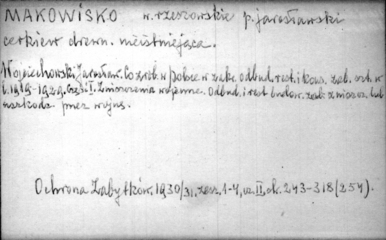 MAKOWISKO w. rzeszowskie p. jarosławski
cerkiew drewn. nieistniejąca.
Wojciechowski Jarosław. Co zrob. w Polsce w zakr. odbud. rest. i kons. zab. arch. w
l. 1919-1929. Część I. Zniszczenia wojenne. Odbud. i rest. budow. zab. zniszcz. lub
uszkodz. przez wojnę.
Ochrona Zabytków. 1930/31. zesz. 1-4, cz. II, str. 243-318 (254).